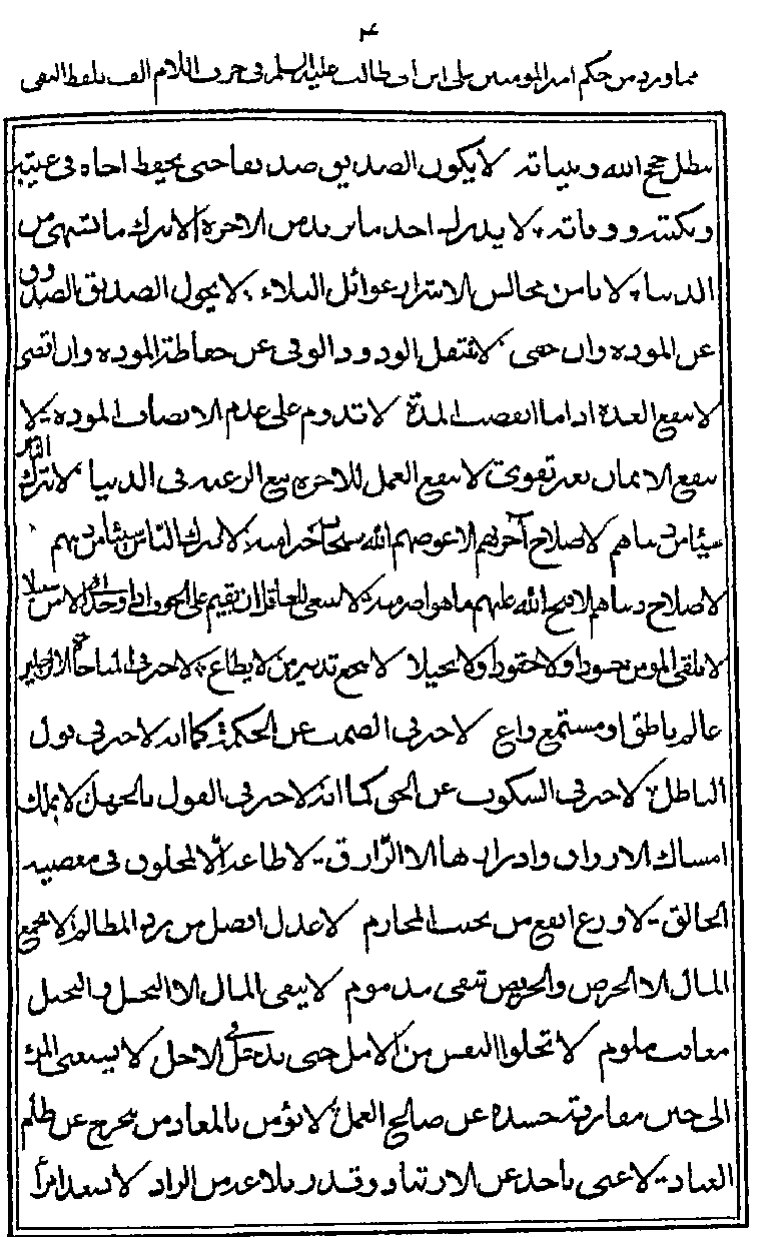 ۴
مما ورد من حكم امير المومنين على ابن ابى طالب عليه السلم فى حرف اللام الف بلفظ النفى
تبطل حجج الله وبيناته لا يكون الصديق صديقا حتى يحفظ اخاه فى غيبته
ونكبته ووفاته لا يدرك احد ما يريد من الاخرة الا بترك ما يشتهى من
الدنيا لا يامن مجالس الاشرار غوائل البلاء لا يحول الصديق الصدوق
عن المودة وان جفى لا ينتقل الودود الوفى عن حفاظة المودة وان اقصى
لا تنفع العدة اذا ما انقضت المدة لا تدوم على عدم الانصاف المودة لا
ينفع الايمان بغير تقوى لا ينفع العمل للاخرة مع الرغبة فى الدنيا لا يترك الناس
شيئا من دنياهم لاصلاح آخرتهم الا عوضهم الله سبحانه خيرا منه لا يترك الناس شيئا من دينهم
لاصلاح دنياهم الا فتح الله عليهم ما هو اضر منه لا ينبغى للعاقل ان يقيم على الخوف اذا وجد الى الامن سبيلا
لا يلقى المومن حسودا ولا حقودا ولا بخيلا لا ينجع تدبير من لا يطاع لا خير فى المناجاة الا لرجلين
عالم ناطق او مستمع واع لا خير فى الصمت عن الحكمة كما انه لا خير فى قول
الباطل لا خير فى السكوت عن الحق كما انه لا خير فى القول بالجهل لا يملك
امساك الارزاق وادرارها الا الرزاق لا طاعة لمخلوق فى معصية
الخالق لا ورع انفع من تجنب المحارم لا عدل افضل من رد المظالم لا يجمع
المال الا الحرص والحريص شقى مذموم لا يبقى المال الا البخل والبخيل
معاقب ملوم لا تخلوا النفس من الامل حتى تدخل فى الاجل لا يستغنى المرء
الى حين مفارقة جسده عن صالح العمل لا يؤمن بالمعاد من يتحرج عن ظلم
العباد لا غنى باحد عن الارتياد وقدر بلاغه من الزاد لا يسعد امرأ